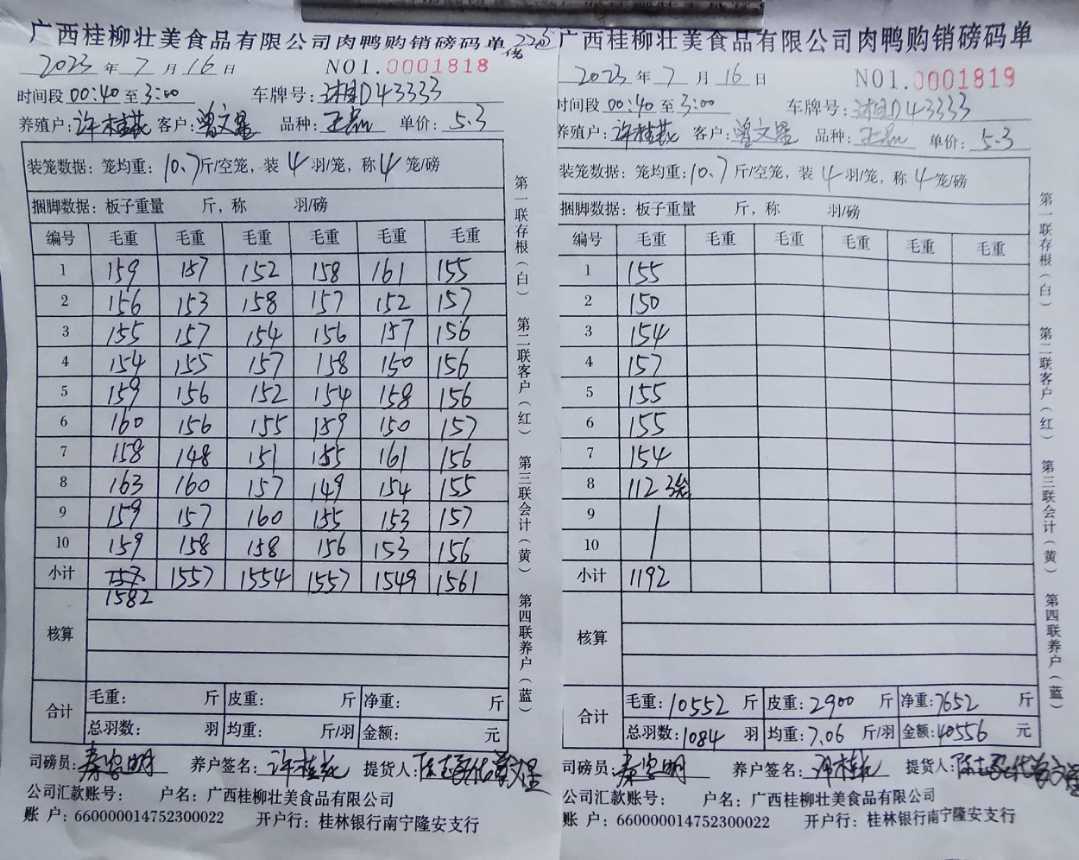 广西桂柳壮美食品有限公司肉鸭购销磅码单
2023 年 7 月 16 日 NO1.0001818
时间段 00:40 至 3:00 车牌号: 湘D43333
养殖户: 许桂花 客户: 品种: 单价: 5.3
装笼数据: 笼均重: 10.7 斤/空笼, 装 4 羽/笼, 称 4 笼/磅
捆脚数据: 板子重量 斤, 称 羽/磅
编号 毛重 毛重 毛重 毛重 毛重 毛重
1 159 157 152 158 161 155
2 156 153 158 157 152 157
3 155 157 154 156 157 156
4 154 155 157 158 150 156
5 159 156 152 154 158 156
6 160 156 155 159 150 157
7 158 148 151 155 161 156
8 163 160 157 149 154 155
9 159 157 160 155 153 157
10 159 158 158 156 153 156
小计 1557 1554 1557 1549 1561
1582
核算
合计 毛重: 斤 皮重: 斤 净重: 斤
总羽数: 羽 均重: 斤/羽 金额: 元
司磅员: 养户签名: 许桂花 提货人:
公司汇款账号: 户名: 广西桂柳壮美食品有限公司
账 户: 660000014752300022 开户行: 桂林银行南宁隆安支行
第一联存根(白) 第二联客户(红) 第三联会计(黄) 第四联养户(蓝)
广西桂柳壮美食品有限公司肉鸭购销磅码单
2023 年 7 月 16 日 NO1.0001819
时间段 00:40 至 3:00 车牌号: 湘D43333
养殖户: 许桂花 客户: 品种: 单价: 5.3
装笼数据: 笼均重: 10.7 斤/空笼, 装 4 羽/笼, 称 4 笼/磅
捆脚数据: 板子重量 斤, 称 羽/磅
编号 毛重 毛重 毛重 毛重 毛重 毛重
1 155
2 150
3 154
4 157
5 155
6 155
7 154
8 112 3笼
9
10
小计 1192
核算
合计 毛重: 10552 斤 皮重: 2900 斤 净重: 7652 斤
总羽数: 1084 羽 均重: 7.06 斤/羽 金额: 40556 元
司磅员: 养户签名: 许桂花 提货人:
公司汇款账号: 户名: 广西桂柳壮美食品有限公司
账 户: 660000014752300022 开户行: 桂林银行南宁隆安支行
第一联存根(白) 第二联客户(红) 第三联会计(黄) 第四联养户(蓝)